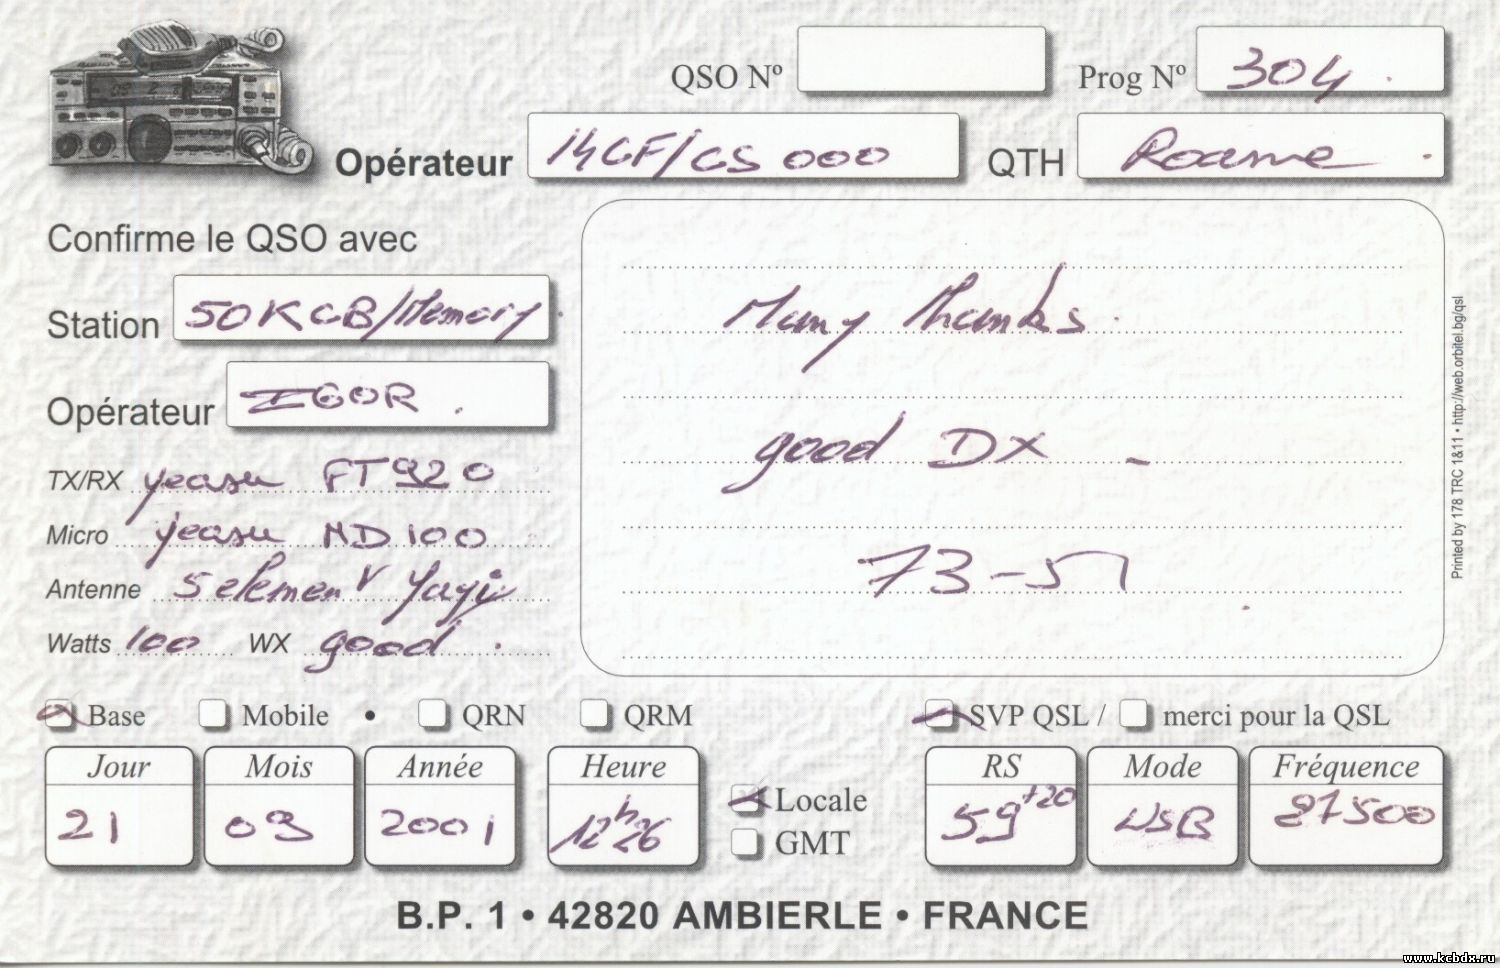 QSO Nº
Prog Nº 304
Opérateur 14GF/GS 000
QTH Roanne
Confirme le QSO avec
Station 50KCB/Memory
Opérateur IGOR
TX/RX yeasu FT920
Micro yeasu MD100
Antenne 5 element Yagi
Watts 100 WX good
Many thanks
good DX
73-51
Base Mobile • QRN QRM SVP QSL / merci pour la QSL
Jour Mois Année Heure RS Mode Fréquence
21 03 2001 12h26 Locale 59+20 USB 27500
GMT
B.P. 1 • 42820 AMBIERLE • FRANCE
Printed by 178 TRC 1&11 • http://web.orbitel.bg/qsl
www.kcbdx.ru